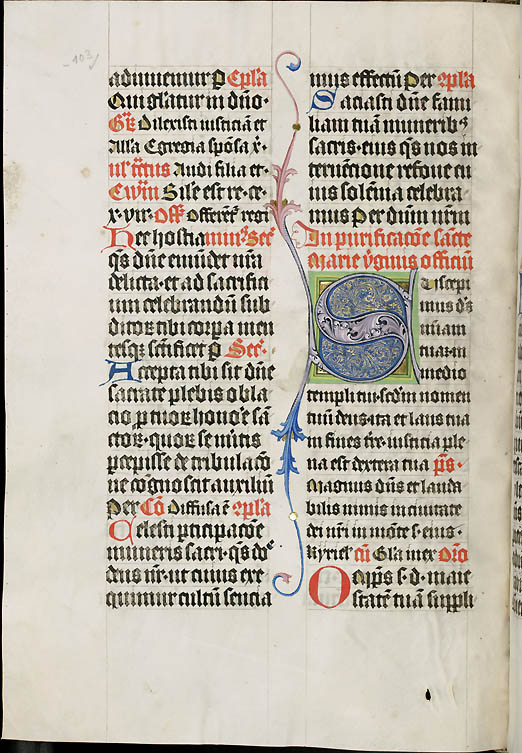 103
adiuuemur P Epl̄a
Qui gl̄atur in dn̄o·
Gr̄ Dilexisti iusticiā et
Alla Egregia spōsa x̄·
us tc̄tus Audi filia et·
Ewm̄ Sīle est re·ce·
x·vir· Off Offerēt regi
Hec hostia mūs Sec̄
qs dn̄e emūdet nr̄a
delicta·et ad sacrifici
um celebrandū sub
ditoꝝ tibi corpa men
tesqꝫ sc̄tificet P Sec̄·
Accepta tibi sit dn̄e
sacrate plebis obla
cio p tuoꝝ honōe sā
ctoꝝ·quoꝝ se mitis
pcepisse de tribulacōe
ne cognoscat auxiliū
Per Cō Diffusa ē 2pl̄a
Celesti pticipacōe
muneris sacri·qs dn̄e
deus nr̄·ut cuius exe
quimur cultū sencia
mus effectū Per 2pl̄a
Saciasti dn̄e fami
liam tuā munerib9
sacris·eius qs nos in
teruencione refoue cu
ius solēnia celebra
mus Per dūm nrm̄
In purificacōe sancte
Marie v̄ginis officiū
Suscepi
mus ds̄
m̄iam
tuam in
medio
templi tui·scdm nomen
tuū deus·ita et laus tua
in fines tr̄e·iusticia ple
na est dextera tua ps̄·
Magnus dn̄s et lauda
bilis nimis in ciuitate
dei nr̄i in mōte s·eius·
Kyriel' cū Gl̄a in ex Orō
Omps s·d·maie
statē tuā suppli